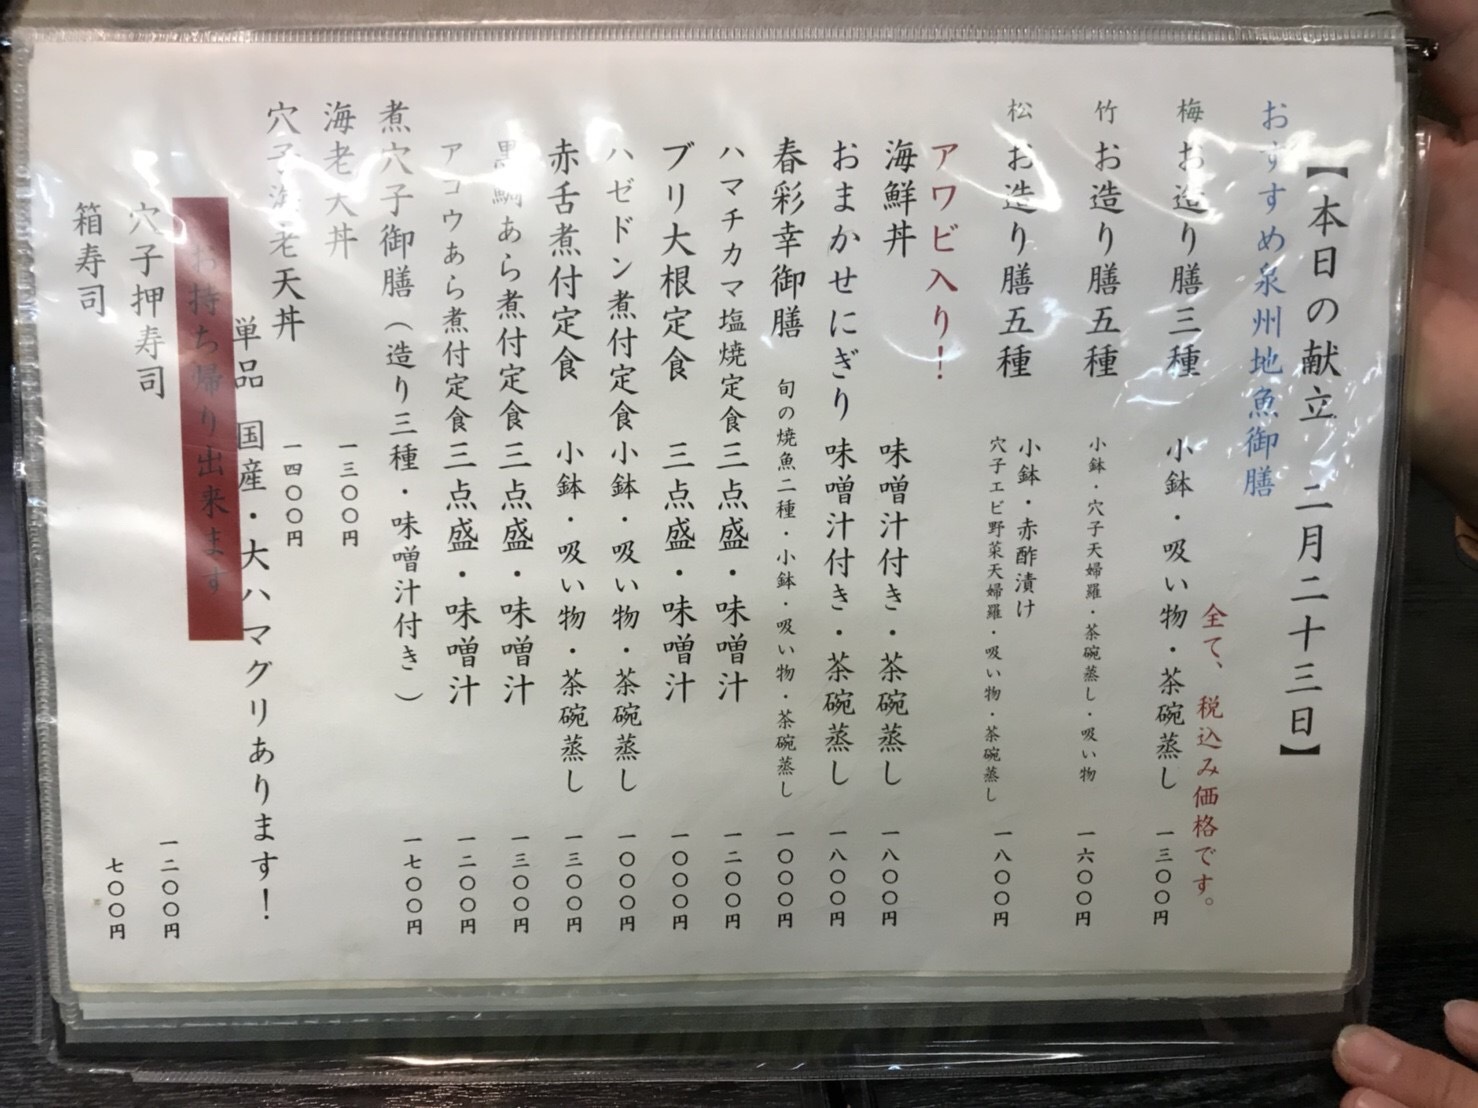 【本日の献立 二月二十三日】
おすすめ泉州地魚御膳
全て、税込み価格です。
梅 お造り膳三種 小鉢・吸い物・茶碗蒸し 一三〇〇円
竹 お造り膳五種 小鉢・穴子天婦羅・茶碗蒸し・吸い物 一六〇〇円
松 お造り膳五種 小鉢・赤酢漬け
穴子エビ野菜天婦羅・吸い物・茶碗蒸し 一八〇〇円
アワビ入り!
海鮮丼 味噌汁付き・茶碗蒸し 一八〇〇円
おまかせにぎり 味噌汁付き・茶碗蒸し 一八〇〇円
春彩幸御膳 旬の焼魚二種・小鉢・吸い物・茶碗蒸し 一〇〇〇円
ハマチカマ塩焼定食 三点盛・味噌汁 一二〇〇円
ブリ大根定食 三点盛・味噌汁 一〇〇〇円
ハゼドン煮付定食 小鉢・吸い物・茶碗蒸し 一〇〇〇円
赤舌煮付定食 小鉢・吸い物・茶碗蒸し 一三〇〇円
黒鯛あら煮付定食 三点盛・味噌汁 一三〇〇円
アコウあら煮付定食 三点盛・味噌汁 一二〇〇円
煮穴子御膳(造り三種・味噌汁付き) 一七〇〇円
海老天丼 一三〇〇円
穴子海老天丼 一四〇〇円
単品 国産・大ハマグリあります!
お持ち帰り出来ます
穴子押寿司 一二〇〇円
箱寿司 七〇〇円